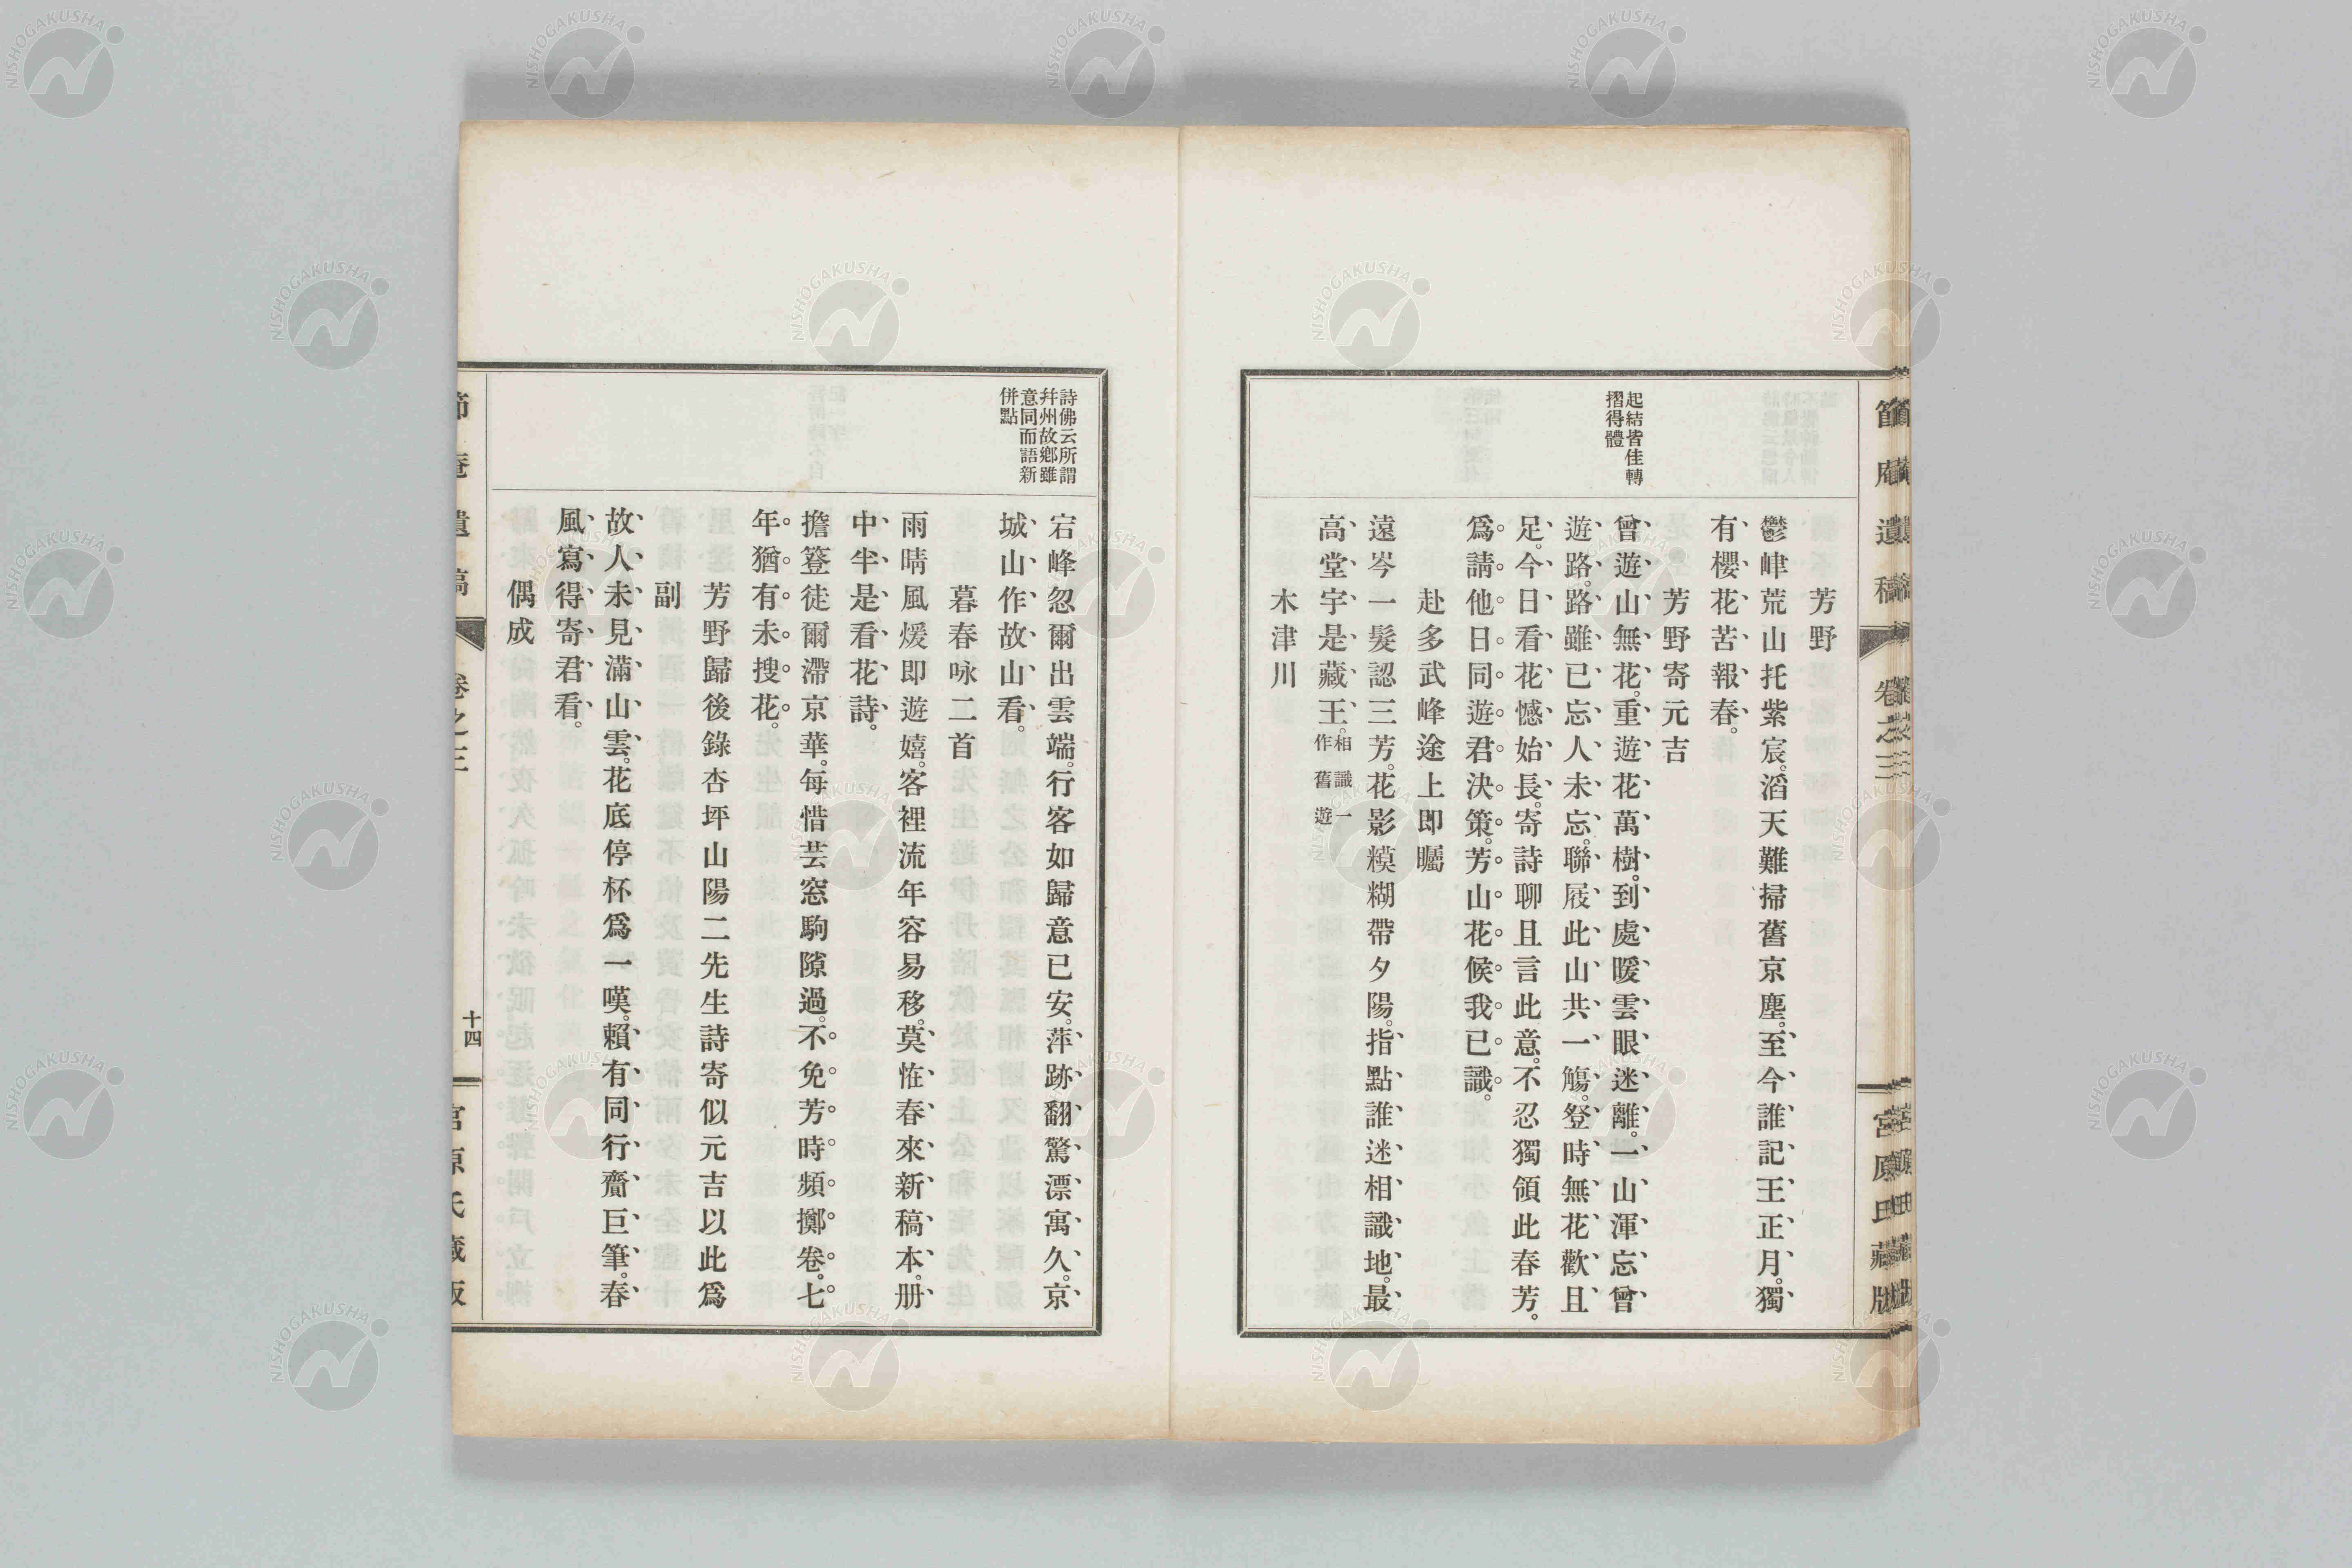 芳野
鬱嵂荒山托紫宸。滔天難掃舊京塵。至今誰記王正月。獨
有櫻花苦報春。
芳野寄元吉
起結皆佳轉
摺得體
曾遊山無花。重遊花萬樹。到處暖雲眼迷離。一山渾忘曾
遊路。路雖已忘人未忘。聯屐此山共一觴。登時無花歡且
足。今日看花憾始長。寄詩聊且言此意。不忍獨領此春芳。
爲請他日同遊君決策。芳山花候我已識。
赴多武峰途上即矚
遠岑一髮認三芳。花影糢糊帶夕陽。指點誰迷相識地。最
高堂宇是藏王。相識一作舊遊
木津川
詩佛云所謂
幷州故鄕雖
意同而語新
併點
宕峰忽爾出雲端。行客如歸意已安。萍跡翻驚漂寓久。京
城山作故山看。
暮春咏二首
雨晴風煖即遊嬉。客裡流年容易移。莫恠春來新稿本。册
中半是看花詩。
擔簦徒爾滯京華。每惜芸窓駒隙過。不免芳時頻擲卷。七
年猶有未搜花。
芳野歸後錄杏坪山陽二先生詩寄似元吉以此爲
副
故人未見滿山雲。花底停杯爲一嘆。賴有同行齎巨筆。春
風寫得寄君看。
偶成
節庵遺稿
卷之三
十四
宮原氏藏版
NISHOGAKUSHA